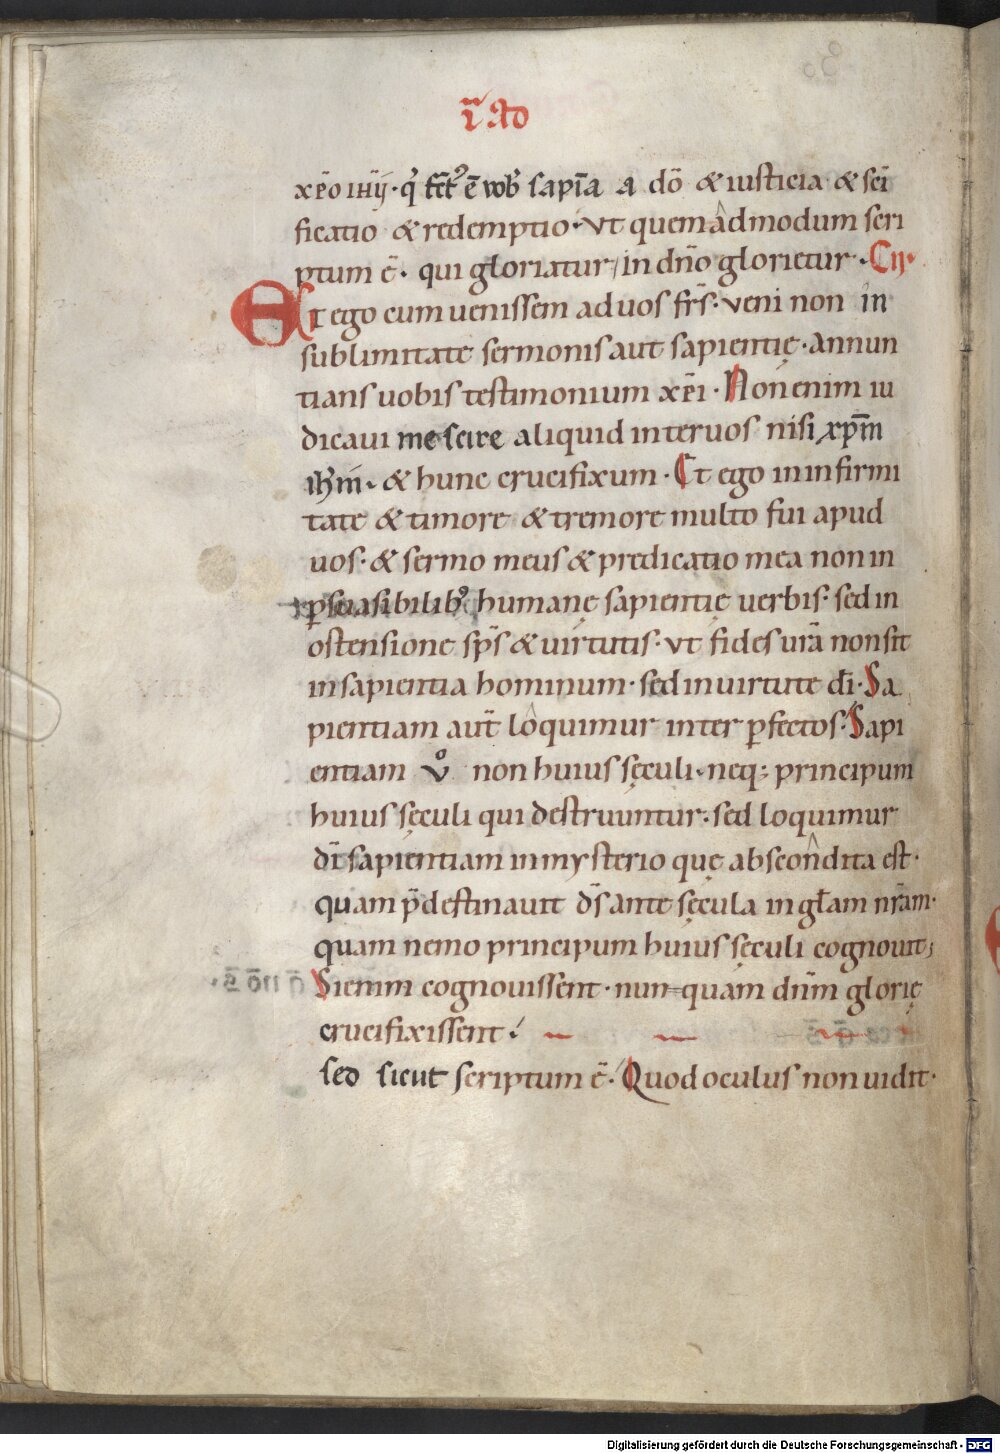 I Ad
xp̄o ihū· q' fct̄' ē vob' sapīa a dō & iusticia & sc̄i
ficatio & redemptio· vt quem âdmodum scri
ptum ē· qui gloriatur/ in dn̄o glorietur· C II·
Et ego cum uenissem ad uos fr̄s· veni non in
sublimitate sermonis aut sapientię· annun
tians uobis testimonium xp̄i· Non enim iu
dicaui me scire aliquid inter uos nisi xpm̄
ihm̄· & hunc crucifixum· Et ego in infirmi
tate & timore & tremore multo fui apud
uos· & sermo meus & predicatio mea non in
ꝑsuasibilib' humanę sapientię verbis· sed in
ostensione sp̄s & virtutis· vt fides urā non sit
in sapientia hominum· sed in uirtute dī· Sa
pientiam aut̄ loquimur inter ꝑfectos· Sapi
entiam v° non huius sęculi· neq; principum
huius sęculi qui destruuntur· sed loquimur
dī sapientiam in mysterio quę abscondita est·
quam p̄destinauit ds̄ ante sęcula in głam nr̄am·
quam nemo principum huius sęculi cognouit;
Si enim cognouissent· nunquam dn̄m glorię
crucifixissent·
sed sicut scriptum ē· Quod oculus non uidit·
Digitalisierung gefördert durch die Deutsche Forschungsgemeinschaft - DFG